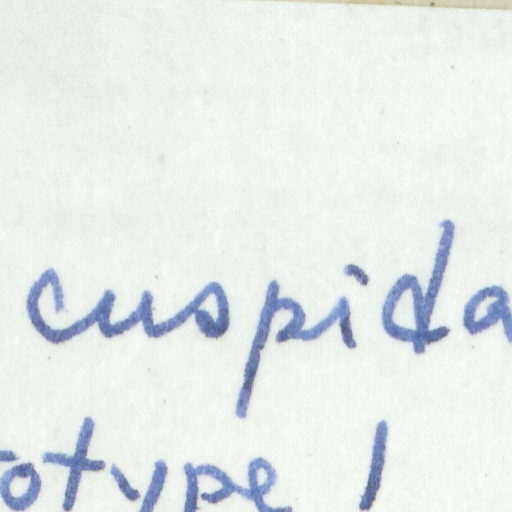 cuspida
otype 1